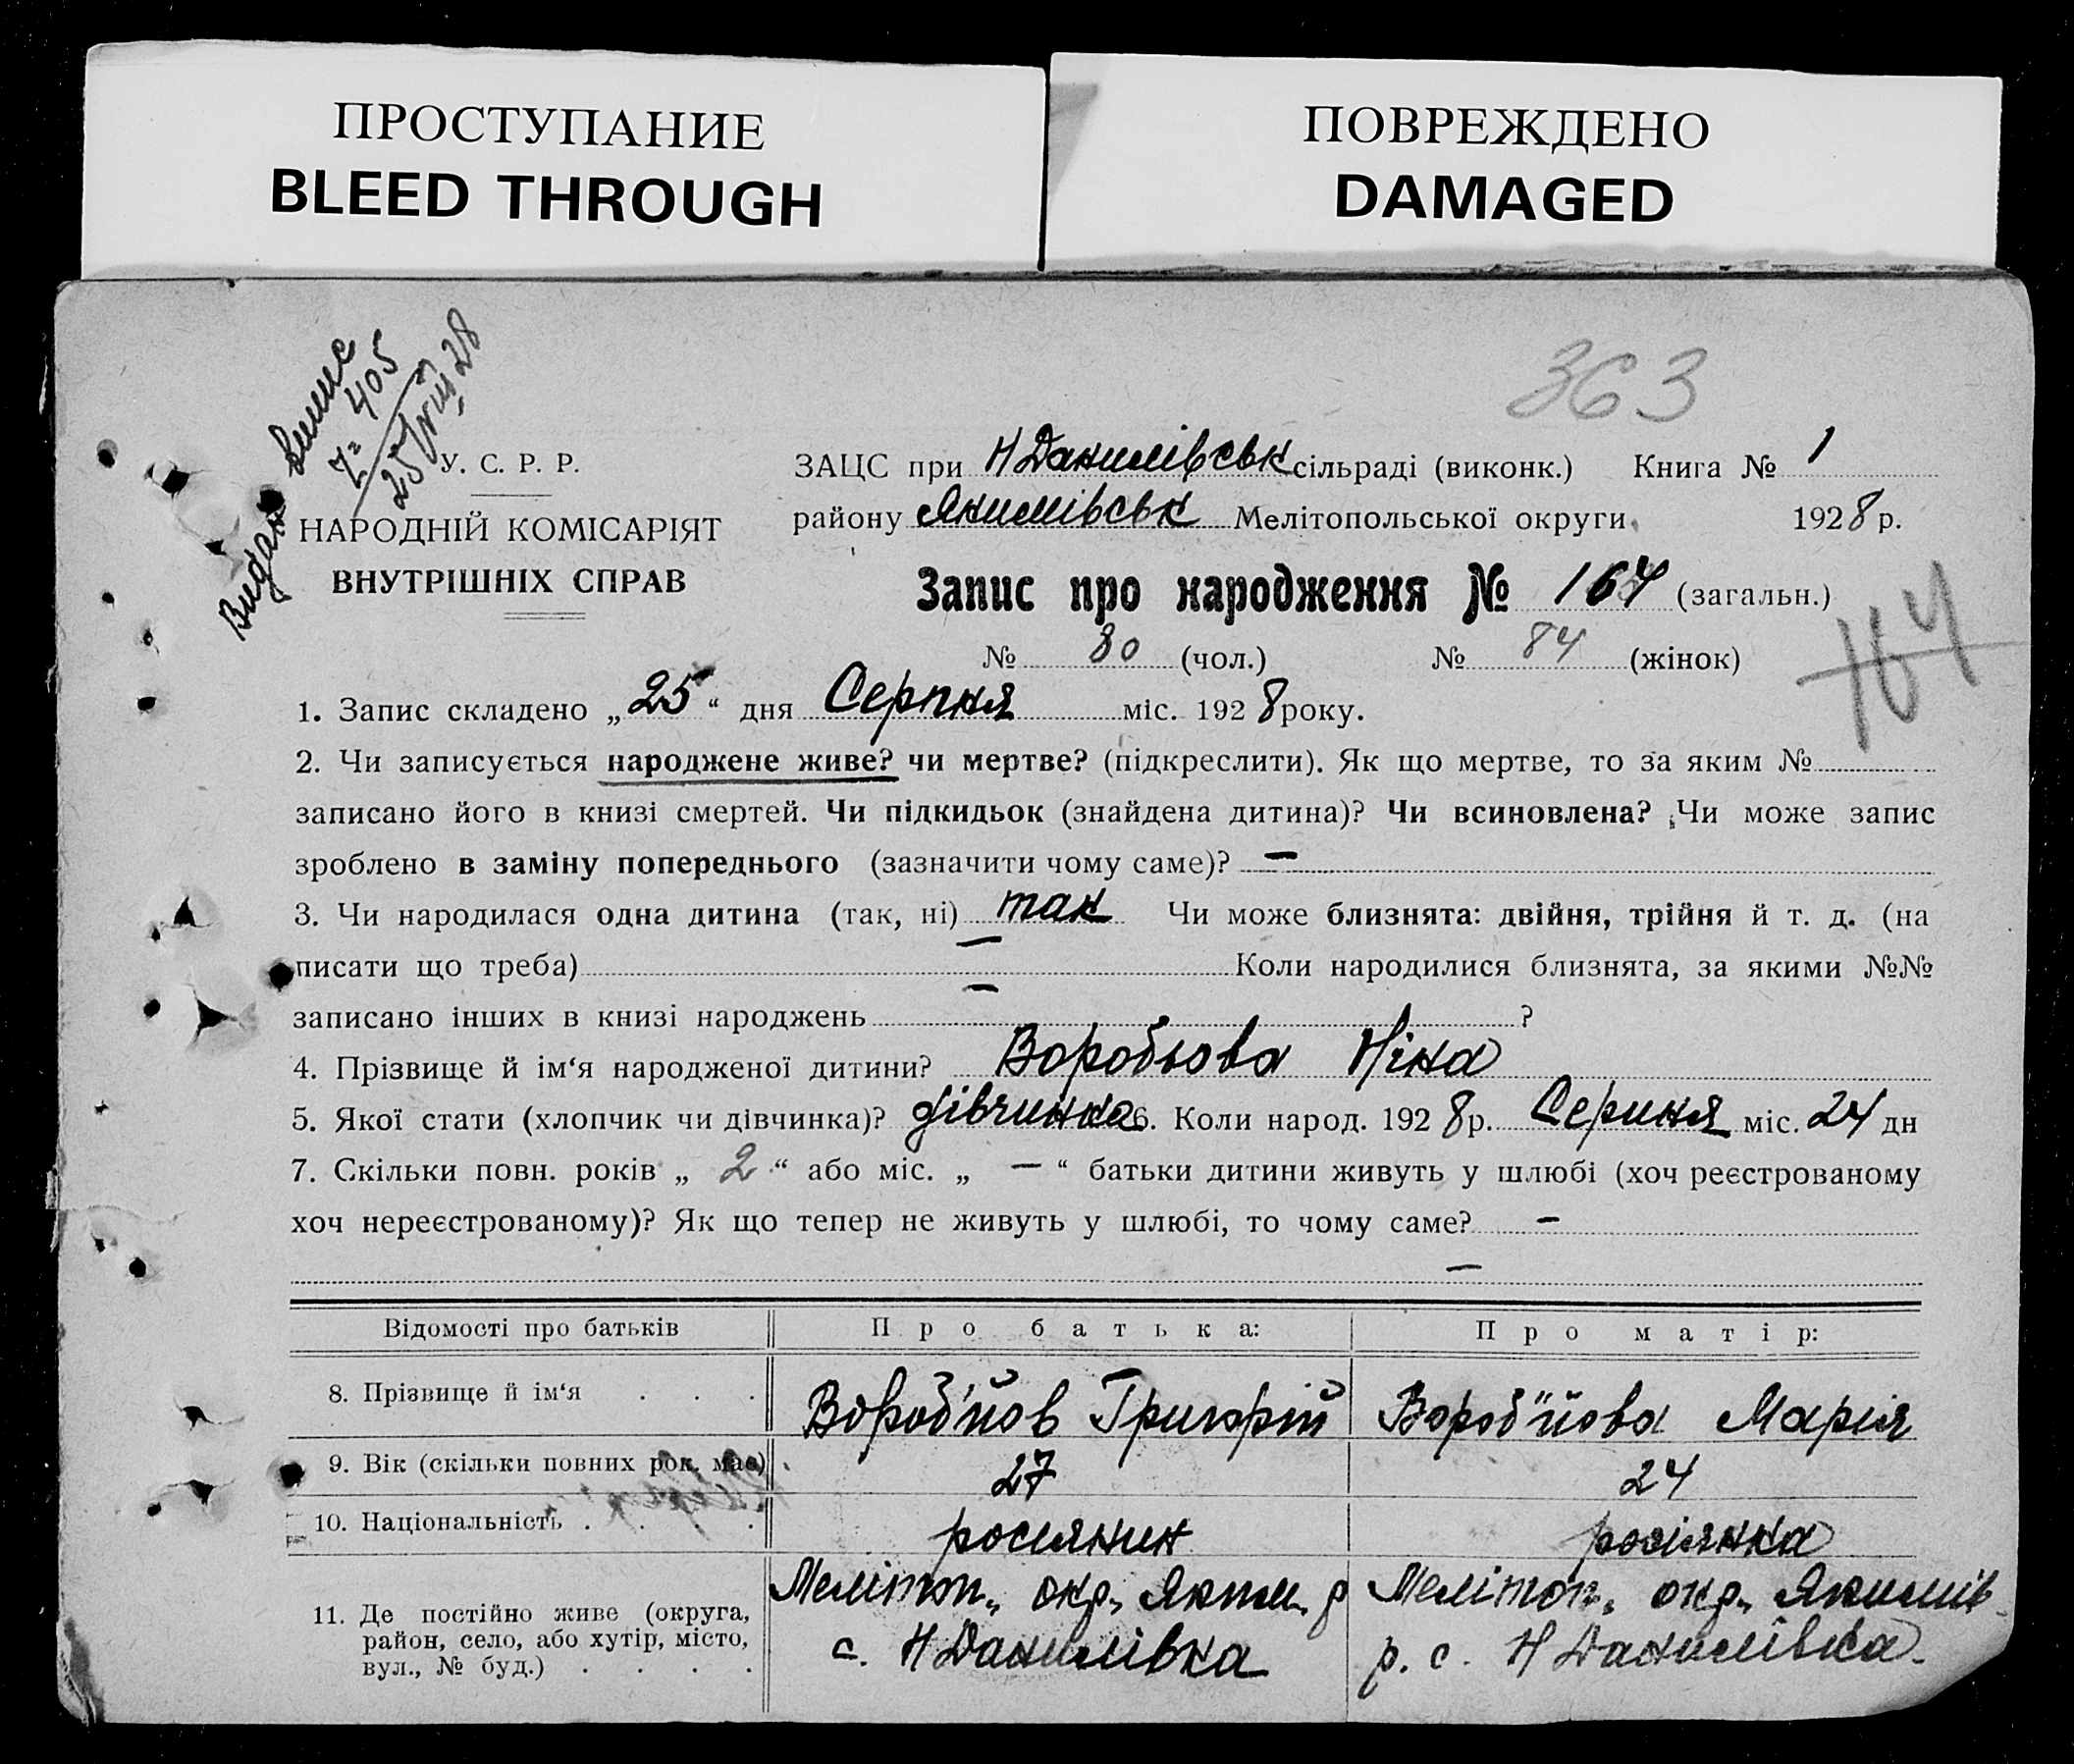 ПРОСТУПАНИЕ
BLEED THROUGH
ПОВРЕЖДЕНО
DAMAGED
Видан Випис
№ 405
25/VIII 28
363
У. С. Р. Р.
НАРОДНІЙ КОМІСАРІЯТ
ВНУТРІШНІХ СПРАВ
ЗАЦС при Н Данилівськ сільраді (виконк.) Книга № 1
району Якимівськ Мелітопольської округи 1928 р.
Запис про народження № 164 (загальн.)
164
№ 80 (чол.) № 84 (жінок)
1. Запис складено „25“ дня Серпня міс. 1928 року.
2. Чи записується народжене живе? чи мертве? (підкреслити). Як що мертве, то за яким №
записано його в книзі смертей. Чи підкидьок (знайдена дитина)? Чи всиновлена? Чи може запис
зроблено в заміну попереднього (зазначити чому саме)? —
3. Чи народилася одна дитина (так, ні) так Чи може близнята: двійня, трійня й т. д. (на
писати що треба) — Коли народилися близнята, за якими №№
записано інших в книзі народжень — ?
4. Прізвище й ім‘я народженої дитини? Воробьова Ніна
5. Якої стати (хлопчик чи дівчинка)? дівчинка 6. Коли народ. 1928 р. Серпня міс. 24 дн
7. Скільки повн. років „ 2 “ або міс. „ — “ батьки дитини живуть у шлюбі (хоч реєстрованому
хоч нереєстрованому)? Як що тепер не живуть у шлюбі, то чому саме? —
—
Відомості про батьків Про батька: Про матір:
8. Прізвище й ім‘я . . . Вороб'йов Григорій Вороб"йова Марія
9. Вік (скільки повних рок. має) 27 24
10. Національність . . . . росиянин росіянка
11. Де постійно живе (округа, район, село, або хутір, місто, вул., № буд.) . . . .
Меліт. окр. Яким. р
с. Н Данилівка
Мелітоп. окр. Якимів
р. с. Н Данилівка.